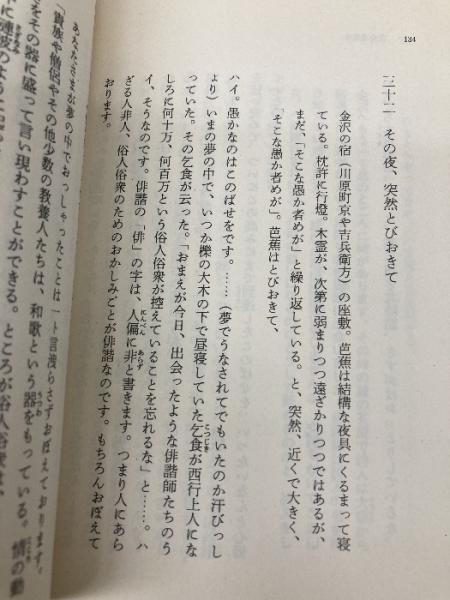 134
三十二 その夜、突然とびおきて
金沢の宿（川原町京や吉兵衛方）の座敷。芭蕉は結構な夜具にくるまって寝
ている。枕許に行燈。木霊が、次第に弱まりつつ遠ざかりつつではあるが、
まだ、「そこな愚か者めが」と繰り返している。と、突然、近くで大きく、
「そこな愚か者めが」。芭蕉はとびおきて、
ハイ。愚かなのはこのばせをです。……（夢でうなされてでもいたのか汗びっし
ょり）いまの夢の中で、いつか櫟の大木の下で昼寝していた乞食が西行上人にな
っていた。その乞食が云った。「おまえが今日、出会ったような俳諧師たちのう
しろに何十万、何百万という俗人俗衆が控えていることを忘れるな」と……。ハ
イ、そうなのです。俳諧の「俳」の字は、人偏に非と書きます。つまり人にあら
ざる人非人、俗人俗衆のためのおかしみごとが俳諧なのです。もちろんおぼえて
おります。
あなたさまが夢の中でおっしゃったことは一ト言洩らさずおぼえております。
「貴族や僧侶やその他少数の教養人たちは、和歌という器をもっている。情の動
をその器に盛って言い現わすことができる。ところが俗人俗衆は、
に漣波のように